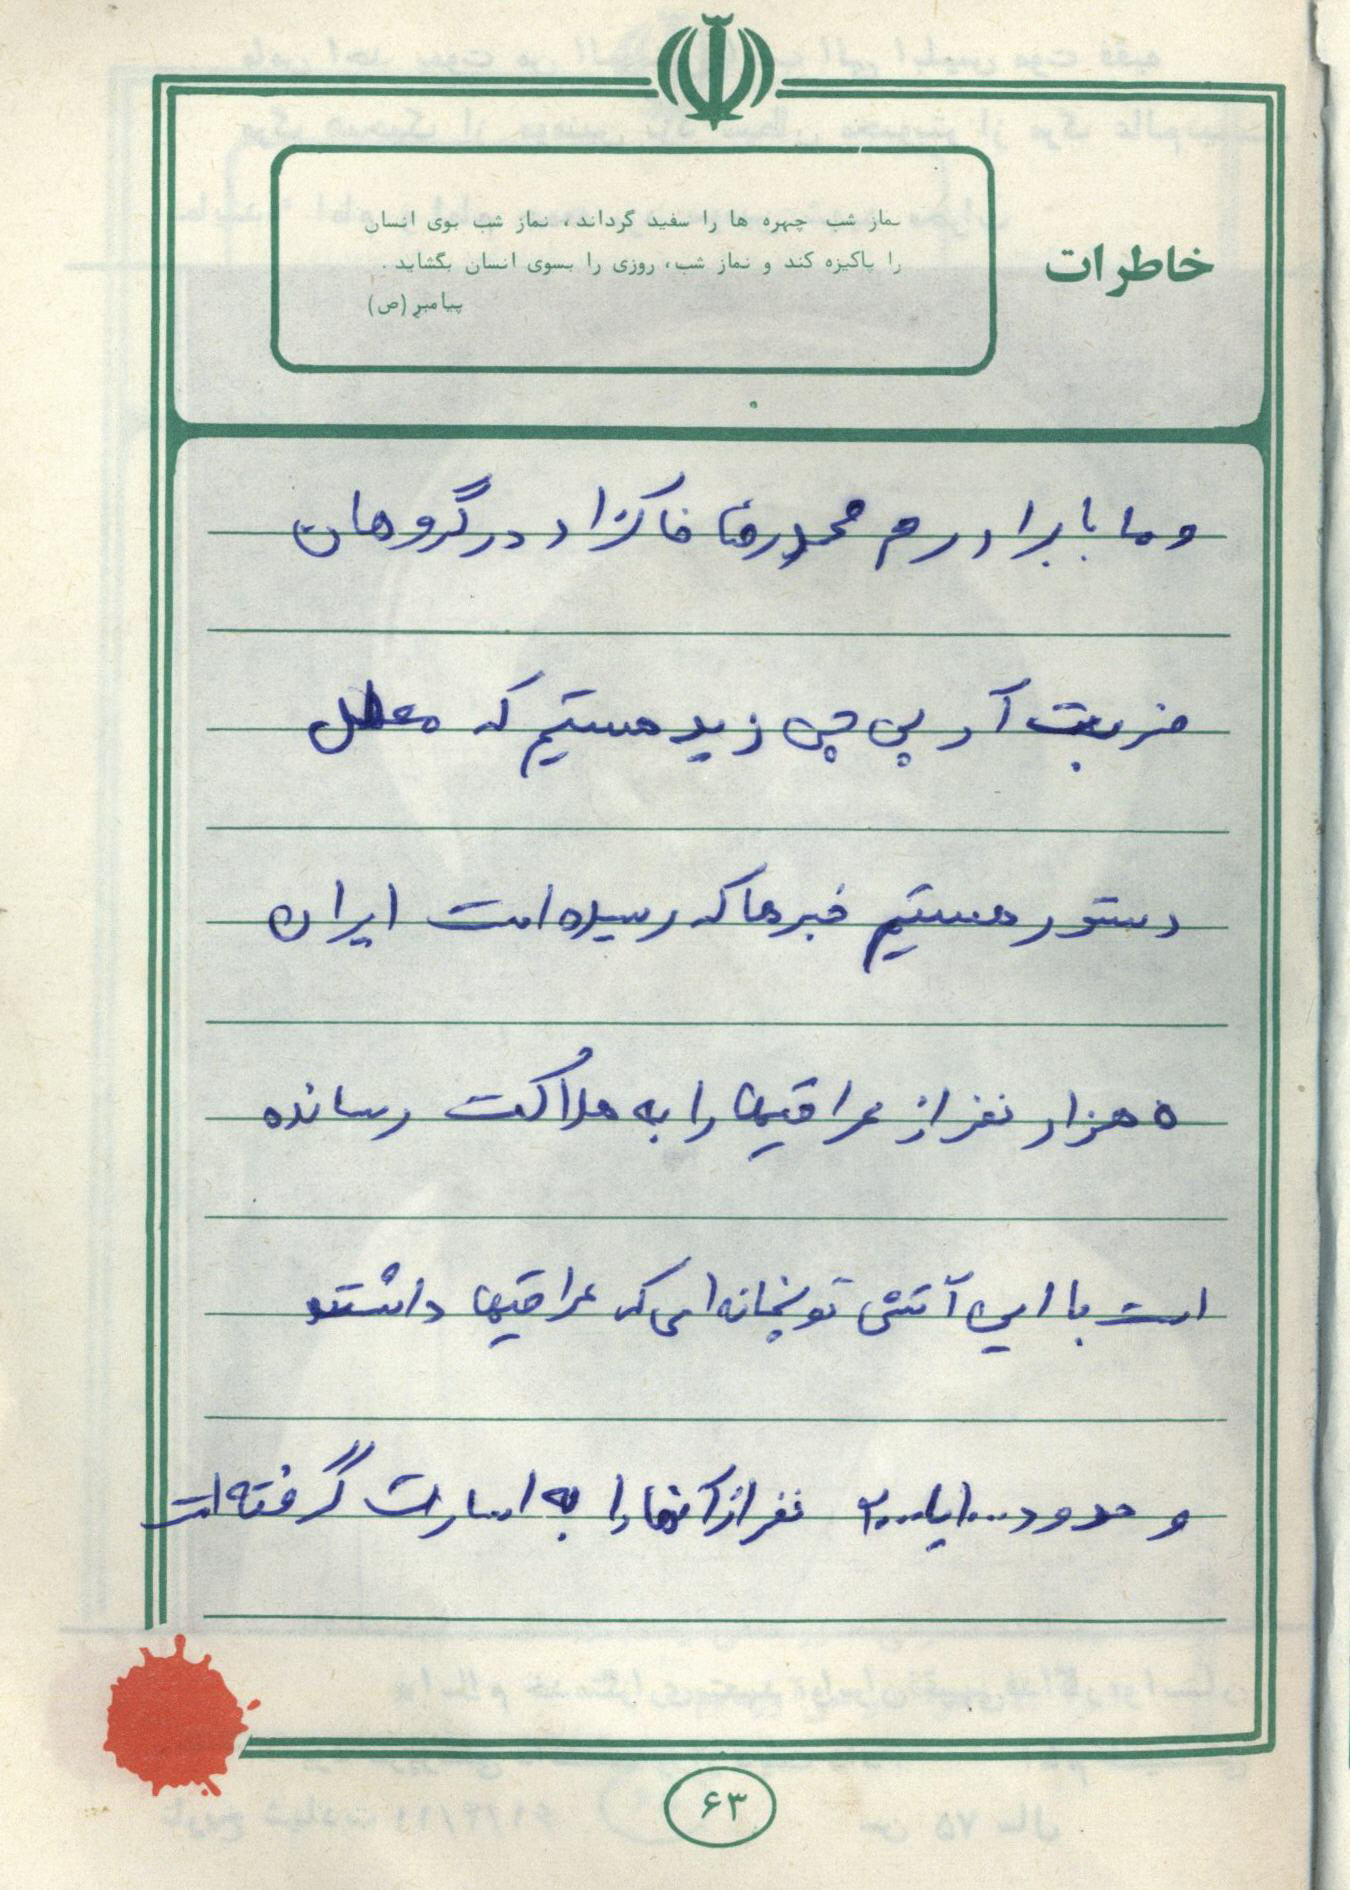 نماز شب چهره ها را سفید گرداند، نماز شب بوی انسان
را پاکیزه کند و نماز شب، روزی را بسوی انسان بگشاید.
پیامبر (ص)
خاطرات
و ما با برادرم محمدرضا خاکزاد در گروهان
ضربت آر پی جی زید هستیم که معطل
دستور هستیم خبرها که رسیده است ایران
۵ هزار نفر از عراقیها را به هلاکت رسانده
است با این آتش توپخانه‌ای که عراقیها داشتند
و حدود ۱۰۰۰ یا ۲۰۰۰ نفر از آنها را به اسارت گرفته است
۶۳